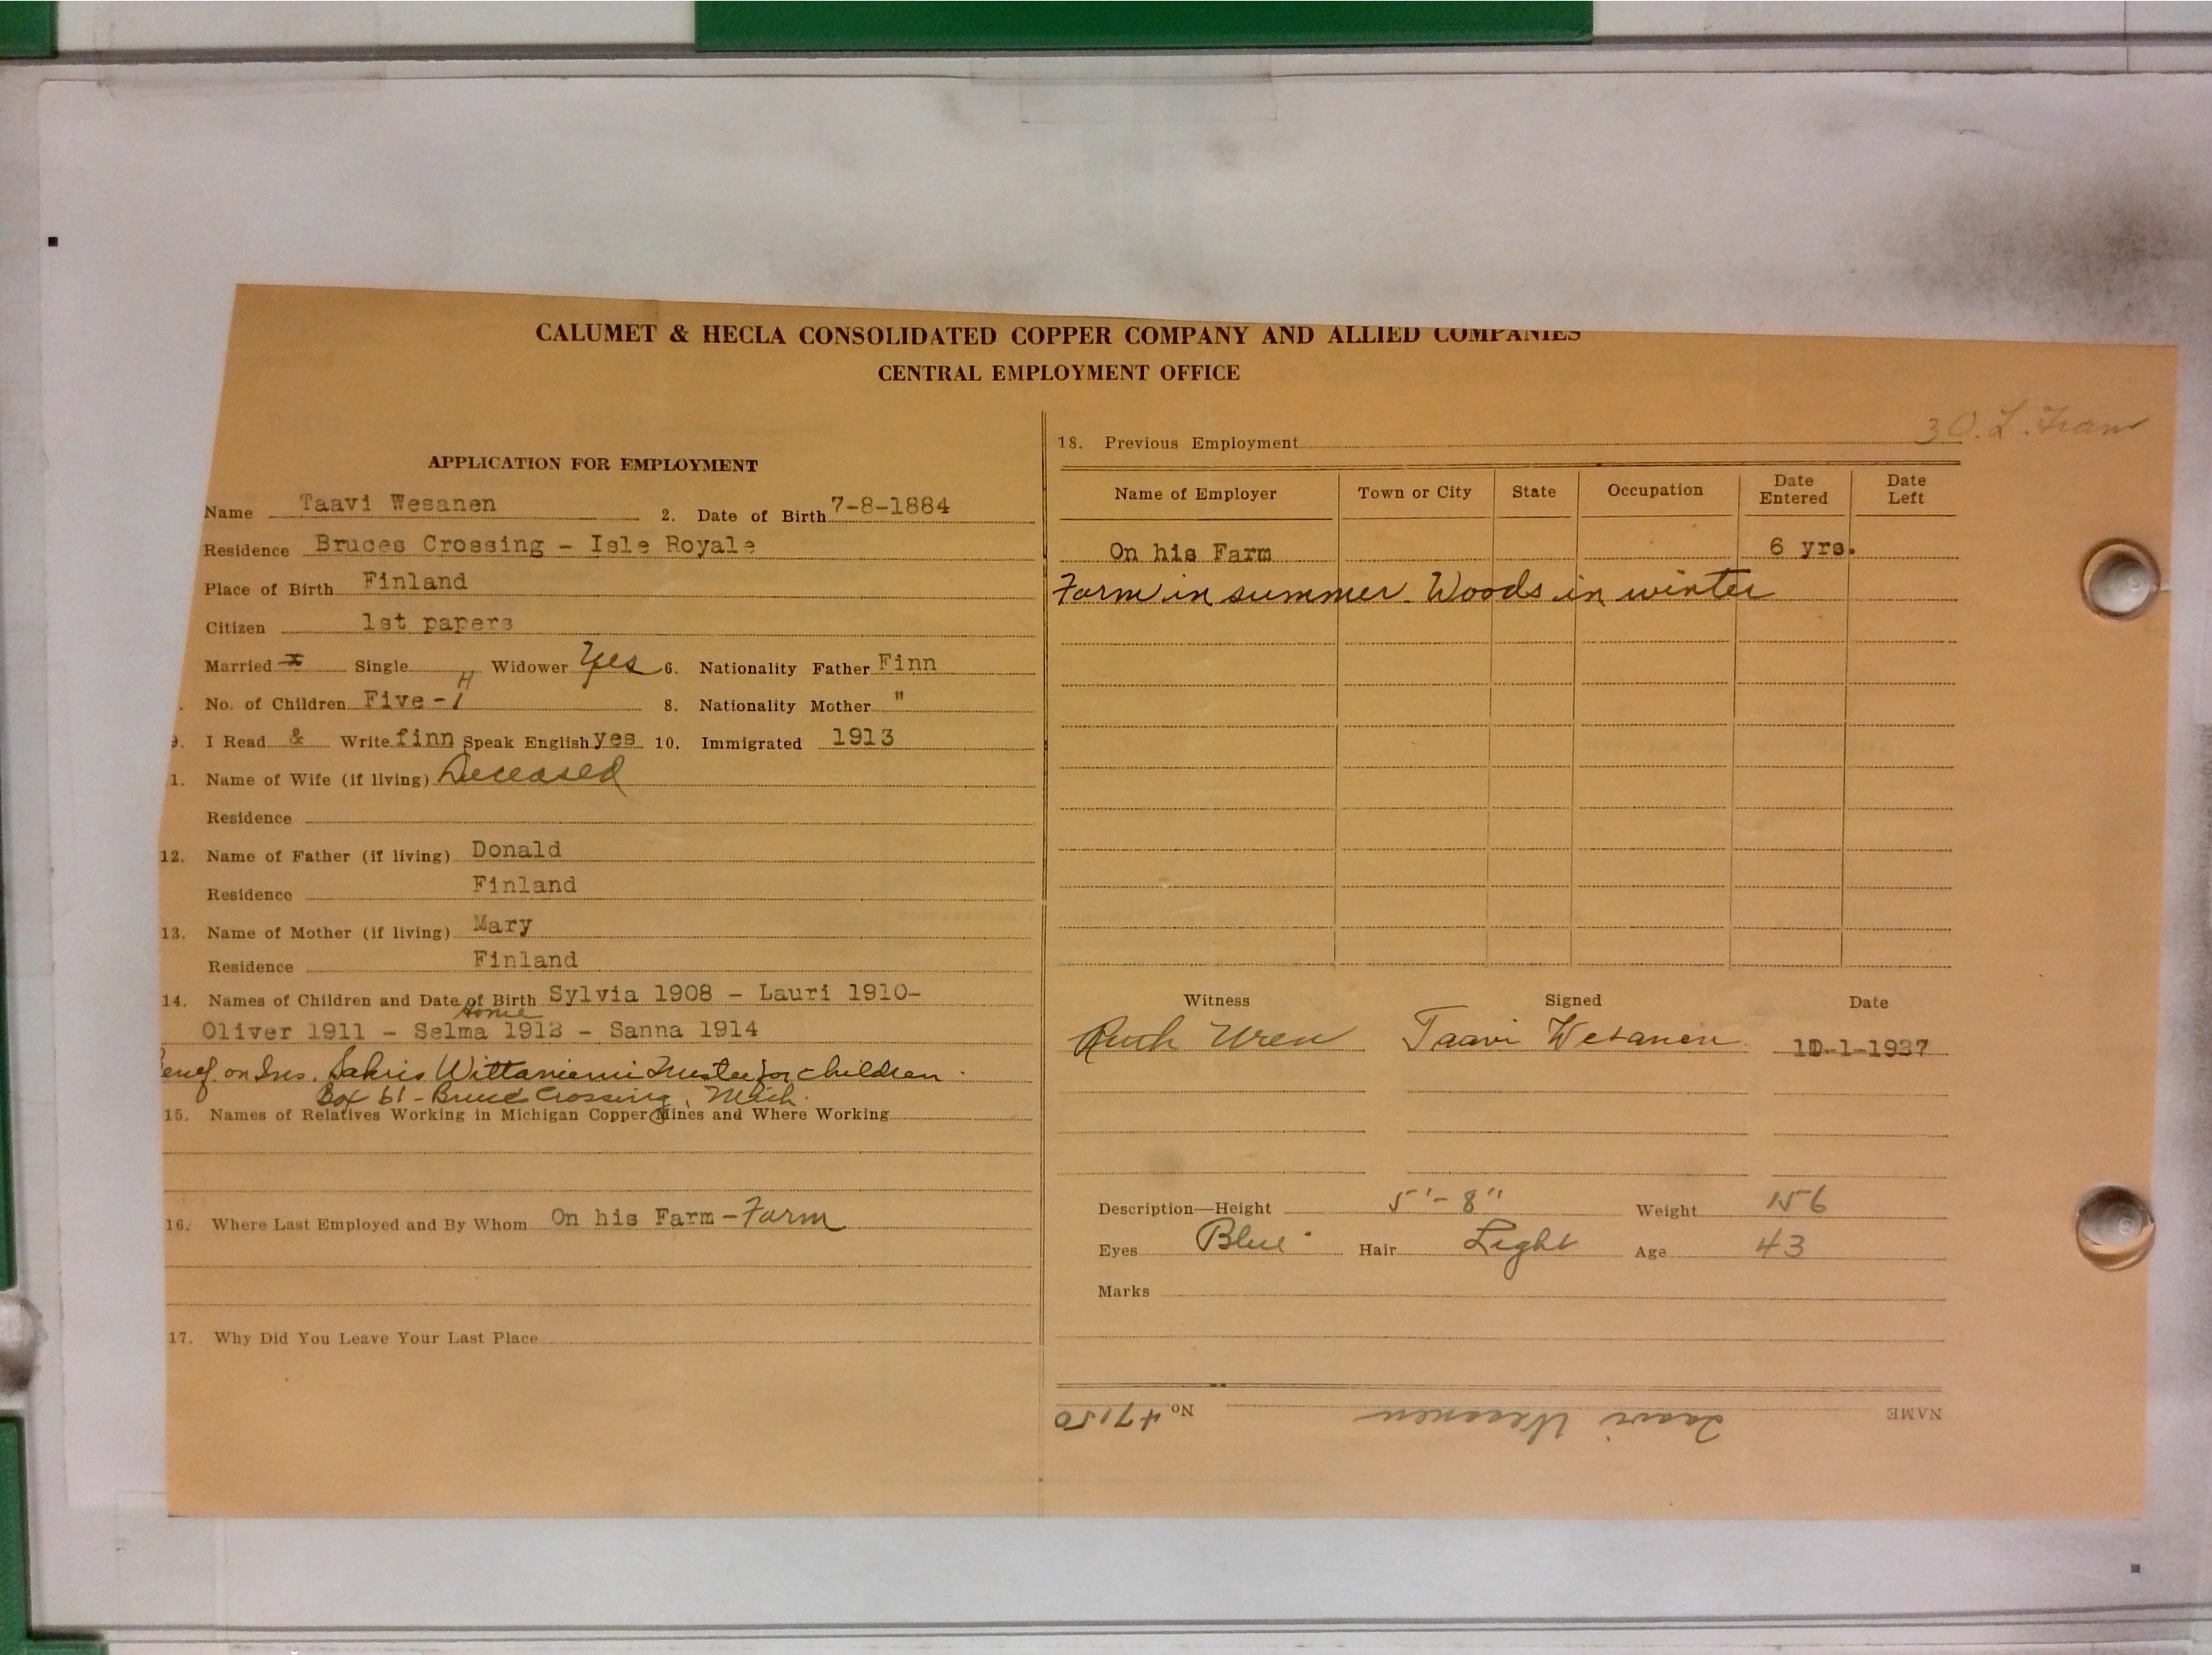 CALUMET & HECLA CONSOLIDATED COPPER COMPANY AND ALLIED COMPANIES
CENTRAL EMPLOYMENT OFFICE
APPLICATION FOR EMPLOYMENT
Name Taavi Wesanen 2. Date of Birth 7-8-1884
Residence Bruces Crossing - Isle Royale
Place of Birth Finland
Citizen 1st papers
Married x Single Widower Yes 6. Nationality Father Finn
. No. of Children Five - 1 H 8. Nationality Mother "
9. I Read & Write finn Speak English yes 10. Immigrated 1913
1. Name of Wife (if living) Deceased
Residence
12. Name of Father (if living) Donald
Residence Finland
13. Name of Mother (if living) Mary
Residence Finland
14. Names of Children and Date of Birth Sylvia 1908 - Lauri 1910-
Home
Oliver 1911 - Selma 1913 - Sanna 1914
on Ins. Sakris Wittaniemi Trustee for children.
Box 61 - Bruce Crossing, Mich.
15. Names of Relatives Working in Michigan Copper Mines and Where Working
16. Where Last Employed and By Whom On his Farm - Farm
17. Why Did You Leave Your Last Place
30.
18. Previous Employment
Name of Employer Town or City State Occupation Date Entered Date Left
On his Farm 6 yrs.
Farm in summer. Woods in winter
Witness Signed Date
Ruth Uren Taavi Wesanen 10-1-1927
Description—Height 5'-8" Weight 156
Eyes Blue Hair Light Age 43
Marks
NAME Taavi Wesanen No. 47150